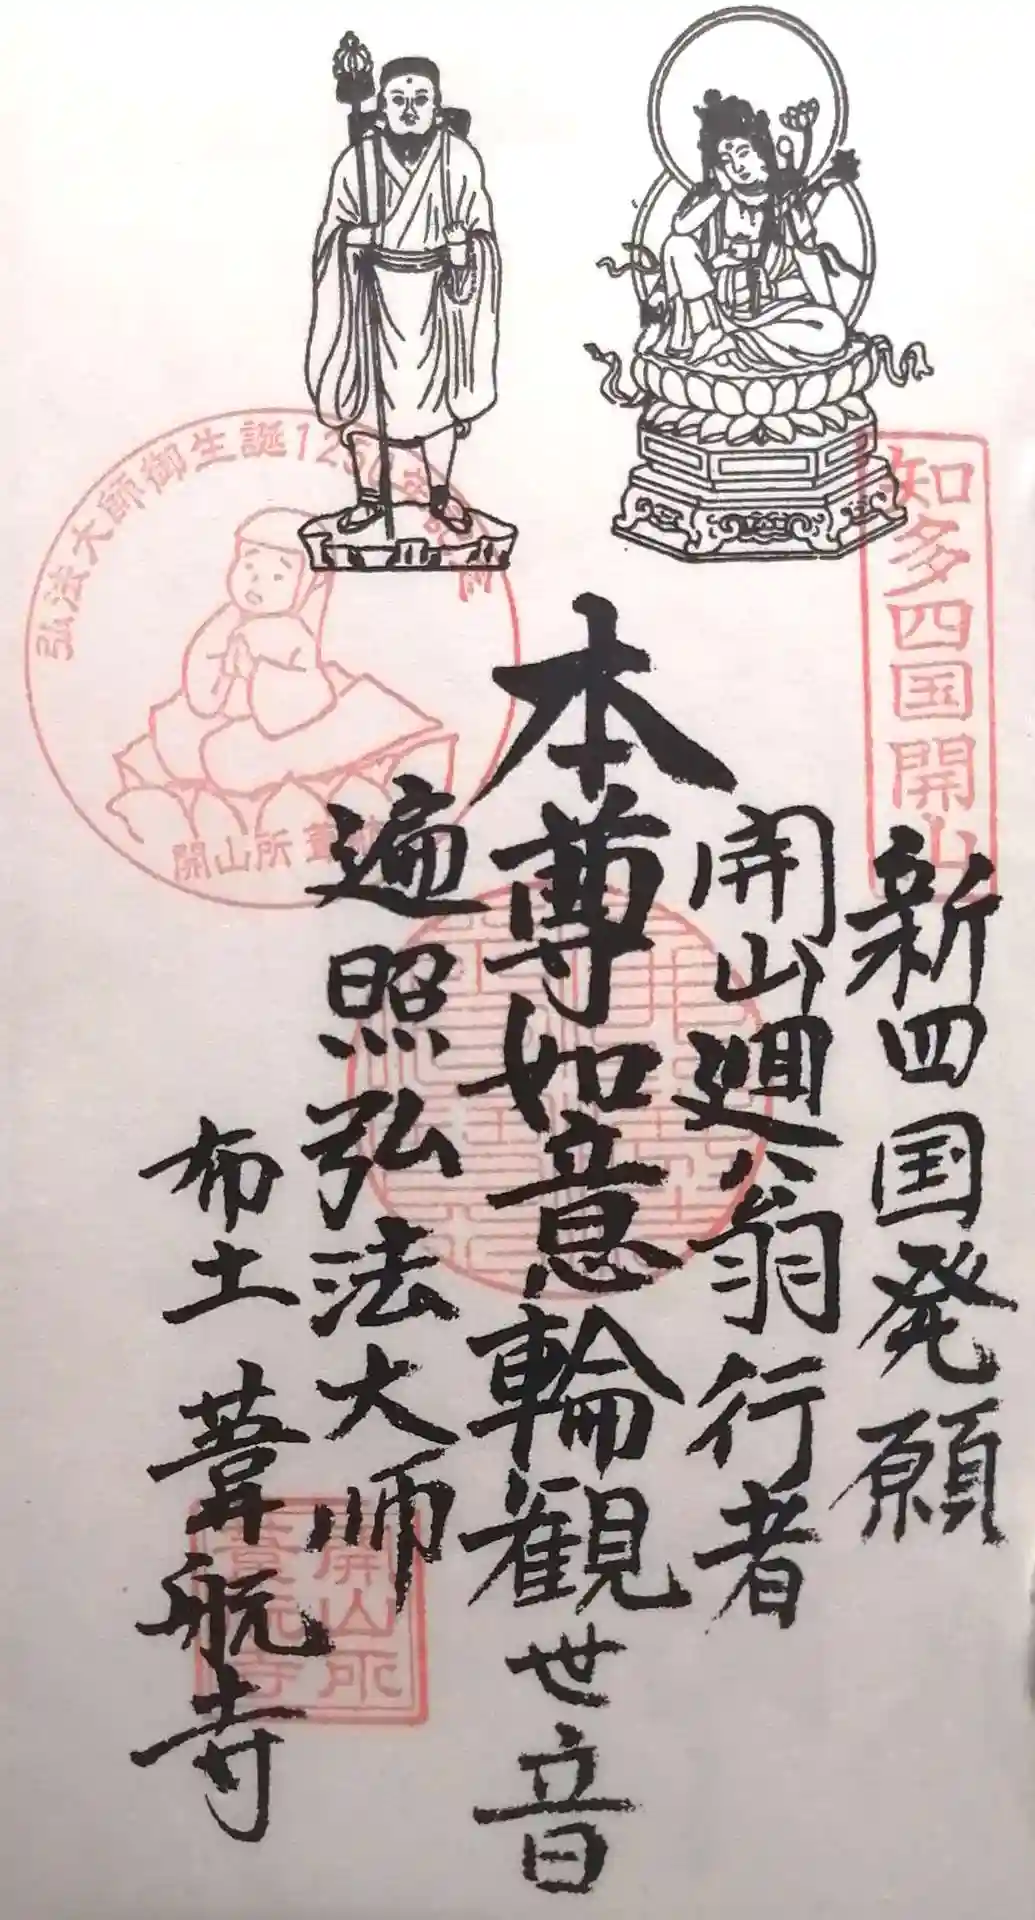 新四国発願
開山廻翁行者
本尊如意輪観世音
遍照弘法大师
布土 葦航寺
知多四国開山
弘法大師御生誕1250年
開山所 葦航寺
開山所
葦航寺